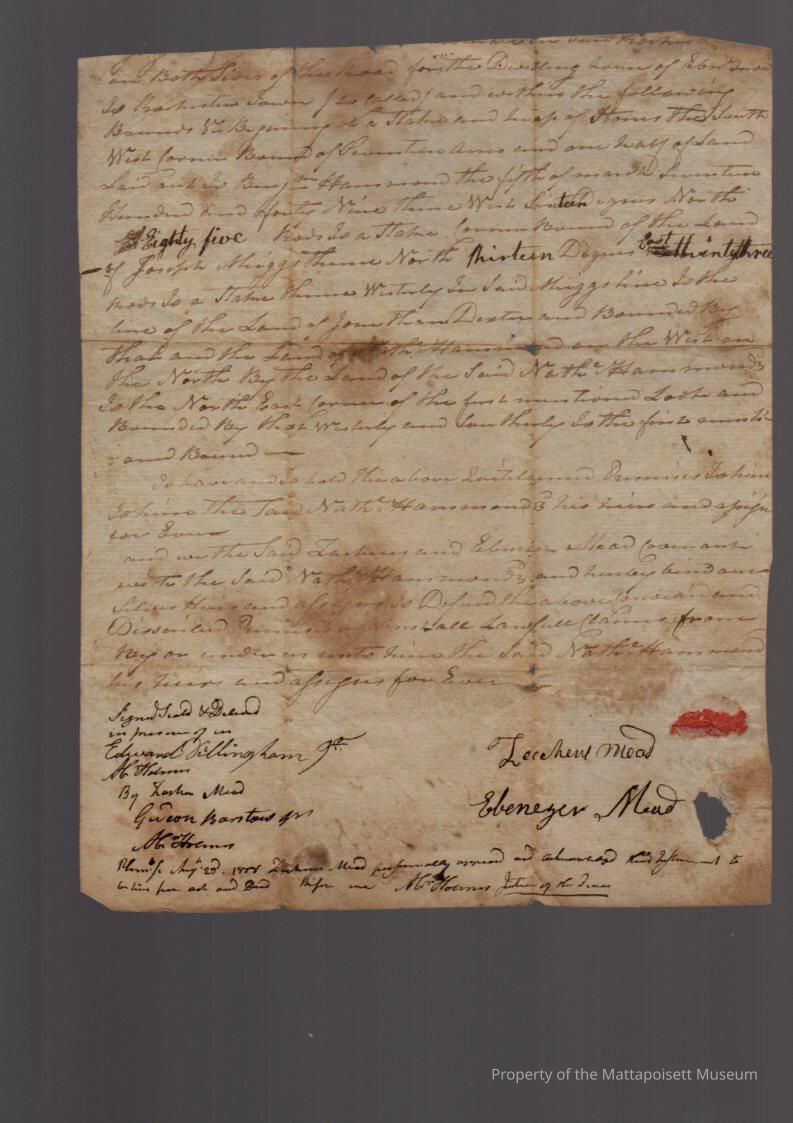 in Said Rochester
on Both Sides of the Road from the Dwelling house of Ebnr
to Rochester Town (so Called) and within the following
Bounds Viz Begining at a Stake and heap of Stones the South
West Corner Bound of Seventeen Acres and one half of Land
Laid out to Benjmn Hammond the fifth of march Seventeen
Hundred and forty Nine thence West Sixteen Degrees North
Eighty five Rods to a Stake Corner Bound of the Land
of Joseph Meiggs thence North thirteen Degrees East twentythree
Rods to a Stake thence Westerly In Said Meiggs line to the
line of the Land of Jonathan Dexter and Bounded By
that and the Land of Nathll Hammond on the West on
the North By the Land of the Said Nathll Hammond 3d
to the North East Corner of the first mentioned Lott and
Bounded By that Westerly and Southerly to the first menti-
-oned Bound
To have and to hold the above Quitclaimed Premises to him
to him the Said Nathll Hammond 3d his heirs and assigns
for Ever
and we the Said Zacheus and Ebenezer Mead Covenant
with the Said Nathll Hammond 3d and hereby bind our
Selves Heirs and assigns to Defend the above and
Discribed Premises against all Lawfull Claims from
By or under us unto him the Said Nathll Hammond
his heirs and assigns for Ever
Signd Seald & Deliverd
in presence of us
Edward Dillingham Jr.
Abm Holmes
By Zacheus Mead
Zacheus Mead
Gideon Barstow Jr
Ebenezer Mead
Abm Holmes
Plymo Ss. Augt 23d. Zacheus Mead personally appeared and acknowledged this Instrument to
be his free act and Deed Before me Abm Holmes Justice of the Peace
Property of the Mattapoisett Museum